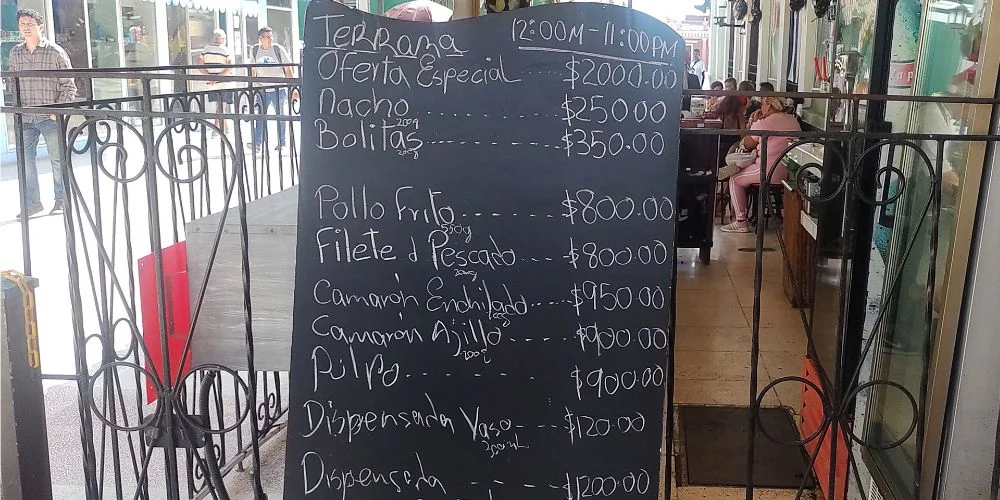 Terraza 12:00M-11:00PM
Oferta Especial ..... $2000.00
Nacho ............ $250.00
200g
Bolitas ............ $350.00
200g
Pollo Frito ........ $800.00
550g
Filete d Pescado ..... $800.00
200g
Camarón Enchilado ..... $950.00
Camarón Ajillo ..... $900.00
200g
Pulpo ........ $900.00
Dispensada Vaso --- $120.00
Dispensada - - - $1200.00